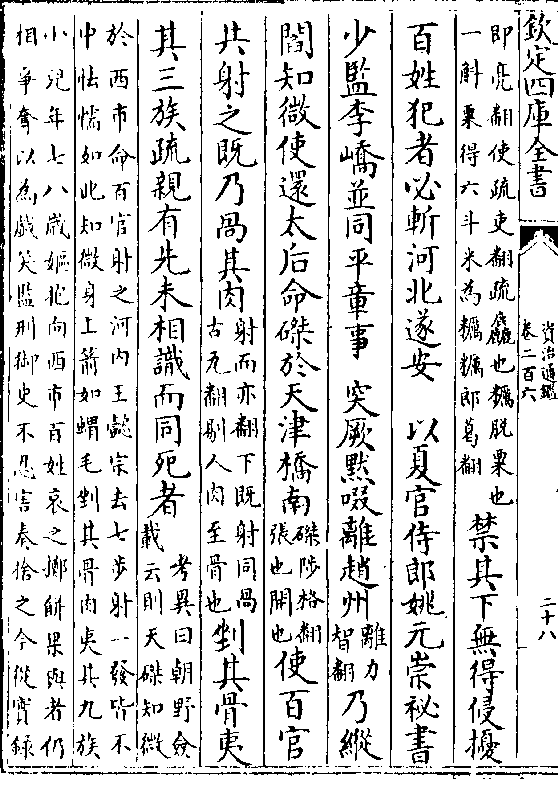 欽定四庫全書
資治通鑑
卷二百六
二十八
即亮翻使疏吏翻疏麤也糲脫粟也
一斛粟得六斗米為糲糲郎葛翻
禁其下無得侵擾
百姓犯者必斬河北遂安　以夏官侍郎姚元崇祕書
少監李嶠並同平章事　突厥默啜離趙州
離力
智翻
乃縱
閻知微使還太后命磔於天津橋南
磔陟格翻
張也開也
使百官
共射之既乃咼其肉
射而亦翻下既射同咼
古瓦翻剔人肉至骨也
剉其骨夷
其三族疏親有先未相識而同死者
考異曰朝野僉
載云則天磔知微
於西市命百官射之河内王懿宗去七步射一發皆不
中怯懦如此知微身上箭如蝟毛剉其骨肉夷其九族
小兒年七八歲嫗抱向西市百姓哀之擲餅果與者仍
相爭奪以為戲笑監刑御史不忍害奏捨之今從實錄